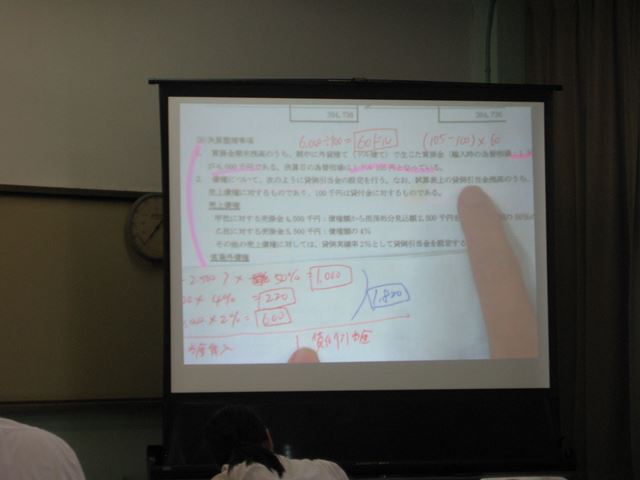 384,736 384,736
決算整理事項
6,000÷100=60ドル (105-100)×60
1. 買掛金期末残高のうち、期中に外貨建て(ドル建て)で生じた買掛金(輸入時の為替相場は
が6,000千円である。決算日の為替相場は1ドル105円となっている。
2. 債権について、次のように貸倒引当金の設定を行う。なお、試算表上の貸倒引当金残高のうち、
売上債権に対するものであり、100千円は貸付金に対するものである。
売上債権
甲社に対する売掛金4,500千円:債権額から担保処分見込額2,500千円を
乙社に対する売掛金5,500千円:債権額の4%
その他の売上債権に対しては、貸倒実績率2%として貸倒引当金を設定する
営業外債権
-2,500)× 50%=1,000
×4%=220
×2%=600
1,820
貸倒引当金